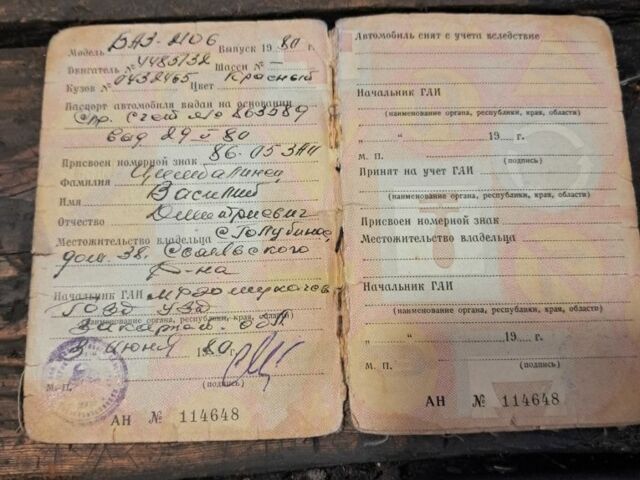 Модель ВАЗ-2106 Выпуск 1980 г.
Двигатель № 4485732 Шасси № —
Кузов № 0432465 Цвет Красный
Паспорт автомобиля выдан на основании
Спр. счет № 863589
29 80
Присвоен номерной знак 86-05 ЗАП
Фамилия
Имя Василий
Отчество Дмитриевич
Местожительство владельца с. Голубиное,
дом. 38. Свалявского
р-на
Начальник ГАИ
ГОВД УВД
(наименование органа, республики, края, области)
Закарпат. обл.
3 июня 1980 г.
М. П. (подпись)
АН № 114648
Автомобиль снят с учета вследствие
Начальник ГАИ
(наименование органа, республики, края, области)
„ “ 19 г.
М. П. (подпись)
Принят на учет ГАИ
(наименование органа, республики, края, области)
Присвоен номерной знак
Местожительство владельца
Начальник ГАИ
(наименование органа, республики, края, области)
„ “ 19 г.
М. П. (подпись)
АН № 114648